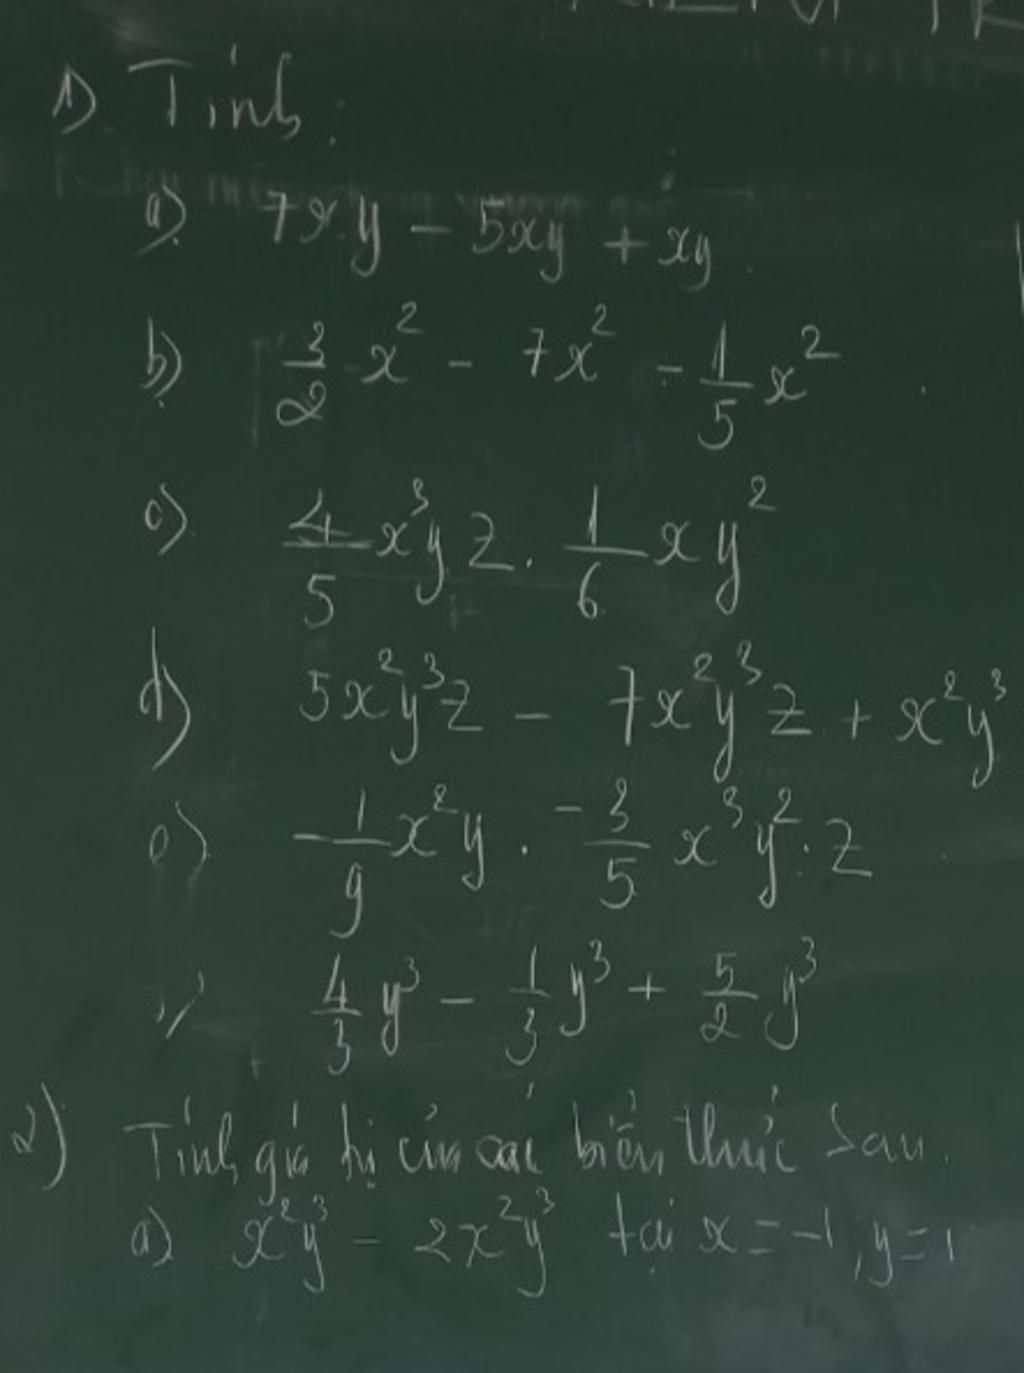 1) Tính:
a) 7xy - 5xy + xy
b) 3/2 x² - 7x² - 1/5 x²
c) 4/5 x³yz . 1/6 xy²
d) 5x²y³z - 7x²y³z + x²y³
e) -1/9 x²y . -3/5 x³y² . z
4/3 y³ - 1/3 y³ + 5/2 y³
2) Tính giá trị của các biển thức sau.
a) x²y³ - 2x²y³ tại x = -1, y = 1